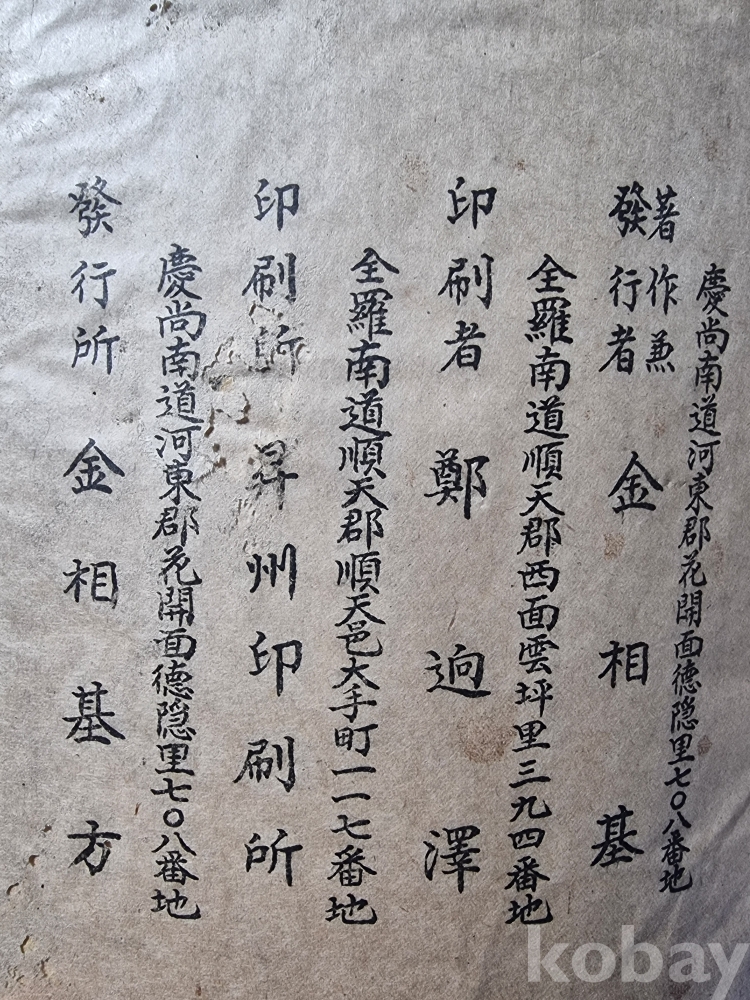 慶尚南道河東郡花開面德隐里七〇八番地
著作兼
發行者 金相基
全羅南道順天郡西面雲坪里三九四番地
印刷者 鄭逈澤
全羅南道順天郡順天邑大手町一一七番地
印刷所 昇州印刷所
慶尚南道河東郡花開面德隐里七〇八番地
發行所 金相基方
kobay